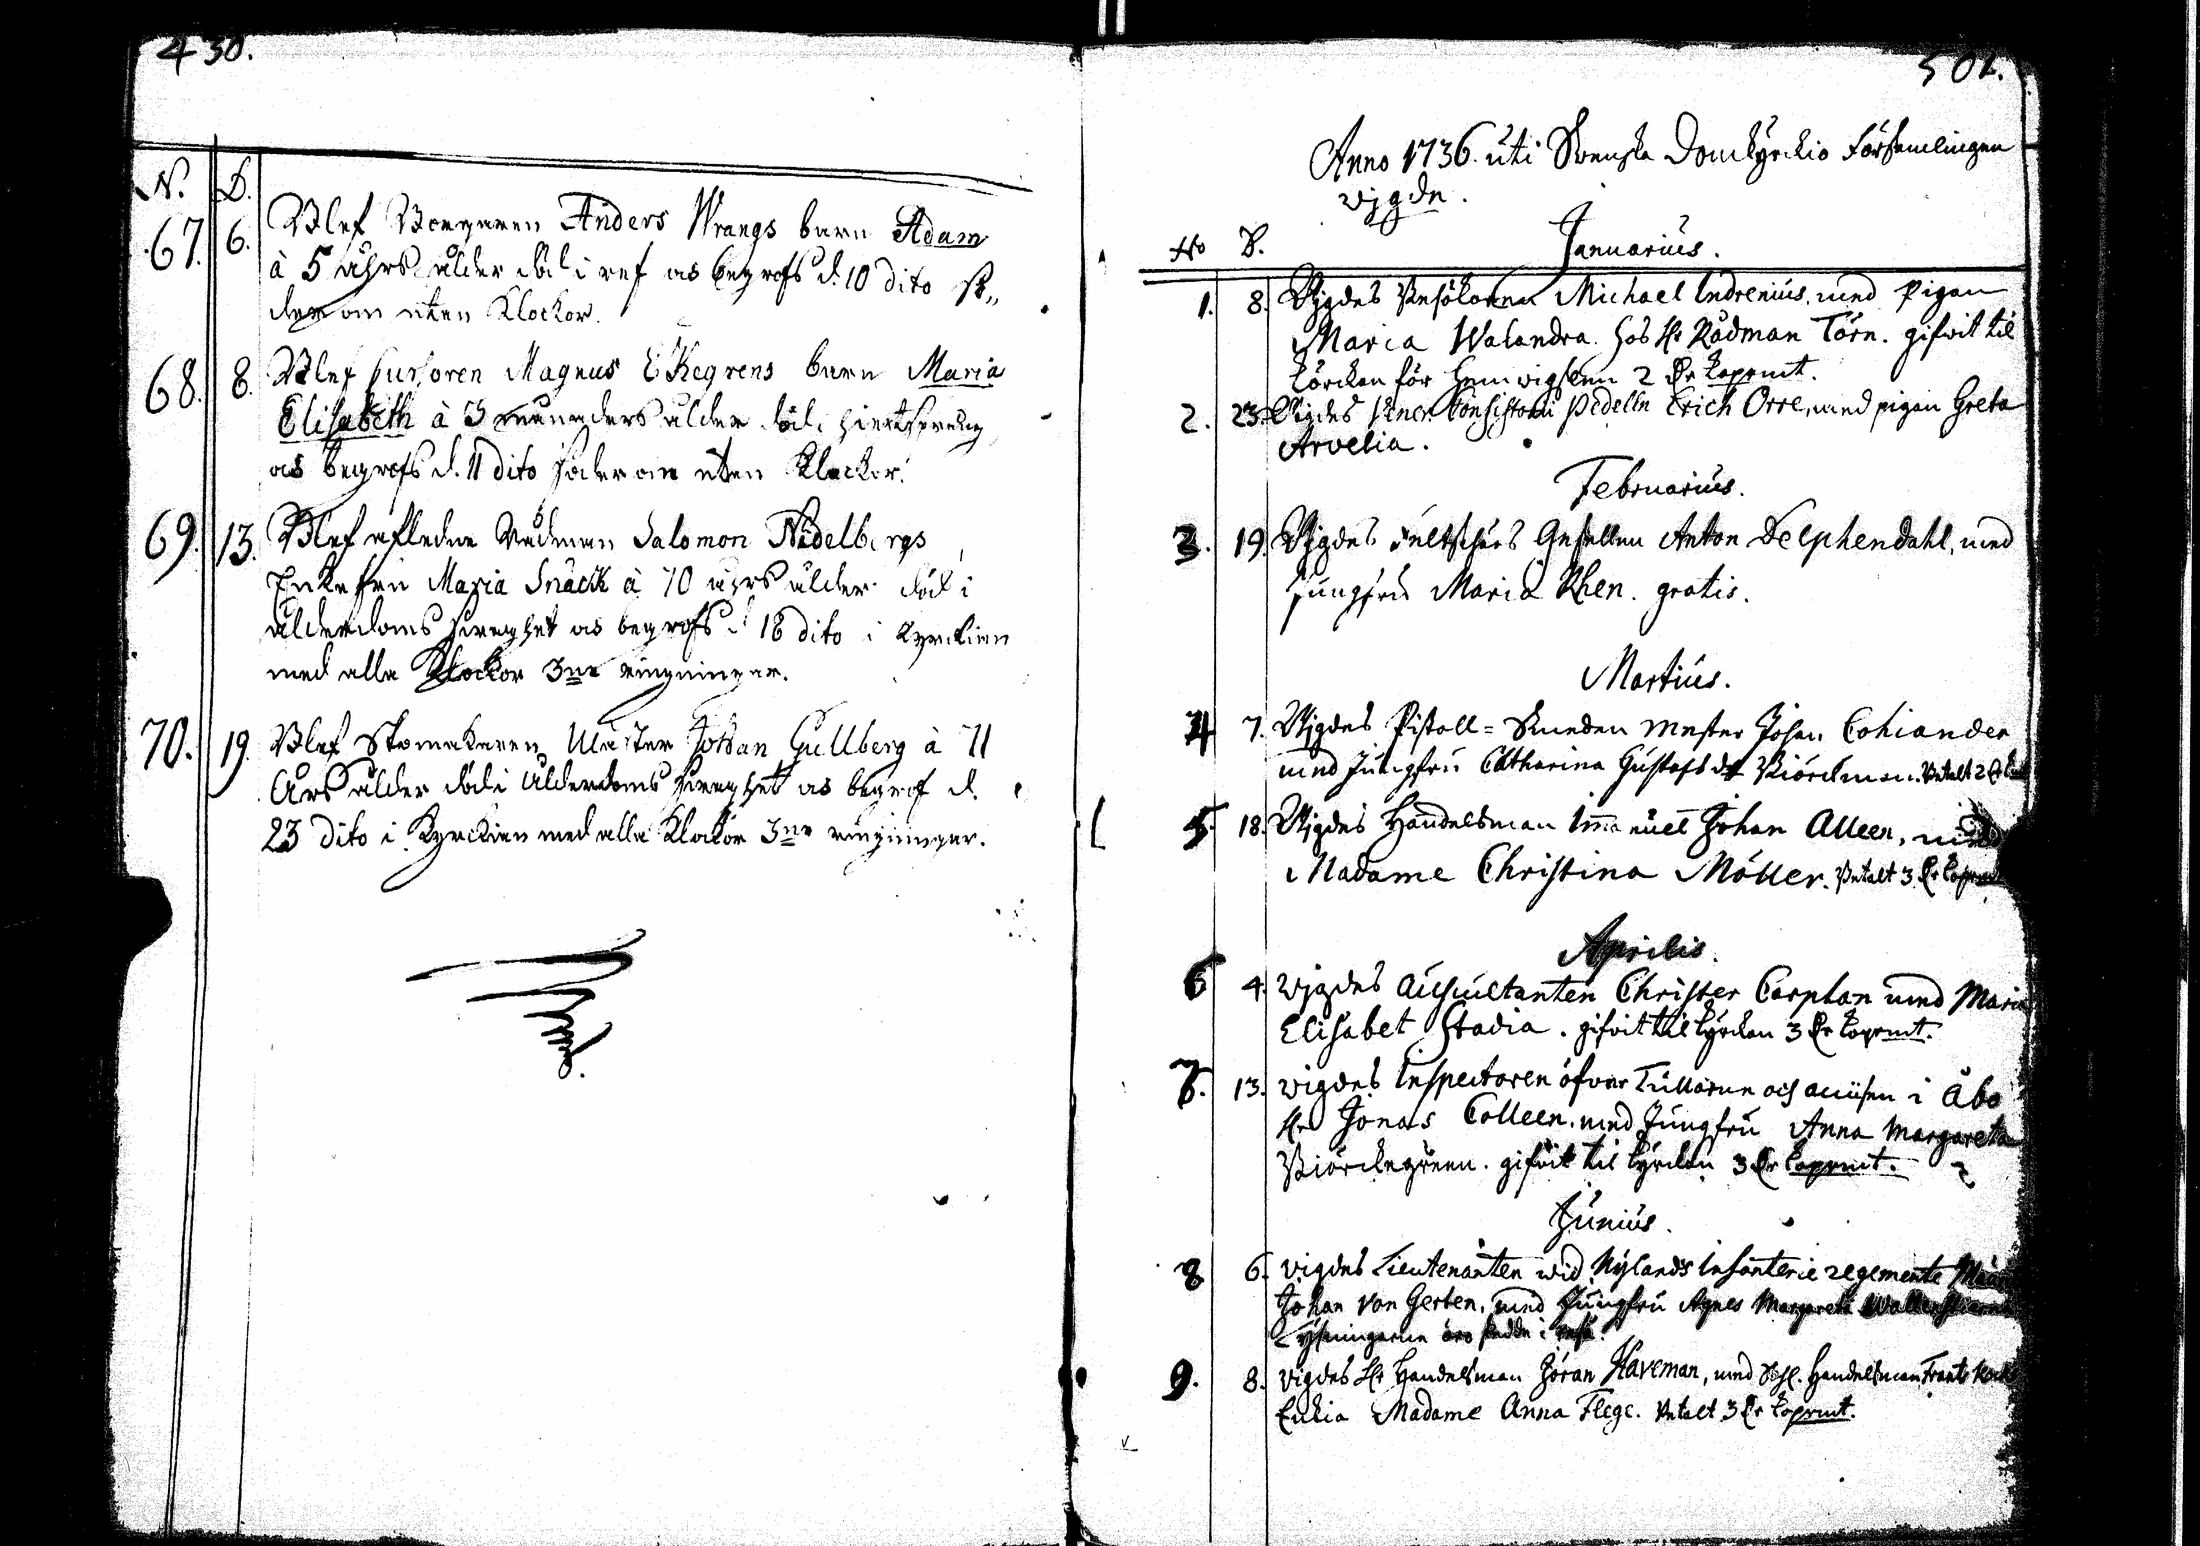 430.
N. D.
67. 6. Blef Borgaren Anders Wrangs barn Adam
à 5 åhrs ålder död i ref as begrofs d. 10 dito sö„
der om uten Klockor.
68. 8. Blef Cursoren Magnus Ekegrens barn Maria
Elisabeth à 3 månaders ålder död i hiertsprång
as begrofs d. 11 dito söder om uten Klockor.
69. 13. Blef afledne Rådman Salomon Nädelbergs
Enkefru Maria Snäck à 70 åhrs ålder död i
ålderdoms swaghet as begrofs d. 16 dito i Kyrckien
med alla Klockor 3ne ringningar.
70. 19. Blef Skomakaren Mäster Johan Gullberg à 71
Års ålder död i ålderdoms swaghet as begrof d.
23 dito i Kyrckien med alla Klockor 3ne ringningar.
501.
Anno 1736. uti Swenska Domkyrckio Församlingen
vigde.
No D. Januarius.
1. 8. Vigdes Besökaren Michael Indrenius, med pigan
Maria Walandra. hos Hr Rådman Törn. gifvit til
körckan för hemvigslen 2 Dr koprmt.
2. 23. Vigdes Vener. Consistorii Pedelln Erich Orre, med pigan Greta
Arvelia.
Februarius.
3. 19. Vigdes Feltschärs Gesellen Anton Delphendahl, med
Jungfru Maria Rhen. gratis.
Martius.
4 7. Vigdes Pistoll=Smeden Mester Johan Cohiander
med Jungfru Catharina Gustafs dr Biörckman. Betalt 2 Dr
5. 18. Vigdes Handelsman Immanuel Johan Alleen, med
Madame Christina Möller. Betalt 3 Dr koprmt
Aprilis.
6 4. Vigdes Auscultanten Christer Carplan med Maria
Elisabet Stadia. gifvit til kyrckan 3 Dr koprmt.
7. 13. Vigdes Inspectoren öfver Tullarne och accisen i Åbo
Hr Jonas Colleen. med Jungfru Anna Margareta
Biörckegreen. gifvit til kyrckan 3 Dr koprmt.
Junius.
8 6. Vigdes Lieutenanten wid Nylands Infanterie regemente
Johan von Gerten, med Jungfru Agnes Margareta Wallenstierna
Lysningarne äro skedde i
9. 8. Vigdes Hr Handelsman Jöran Haveman, med Sahl. Handelsman Frants Kocks
Enckia Madame Anna Flege. Betalt 3 Dr koprmt.